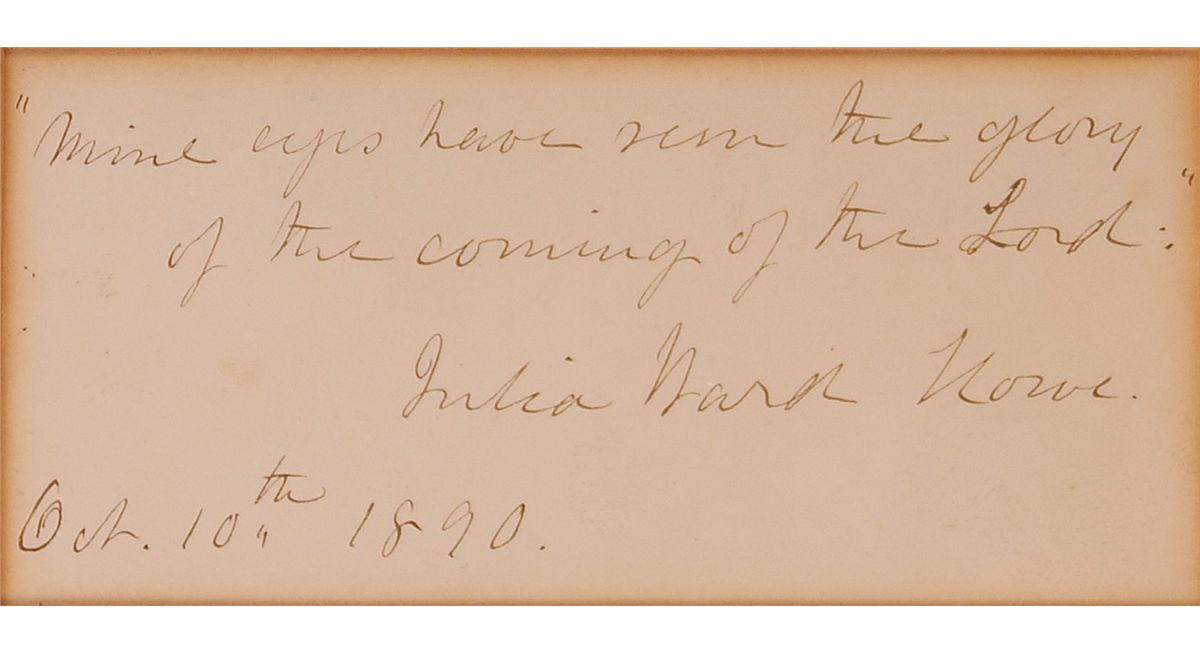 "Mine eyes have seen the glory
of the coming of the Lord:"
Julia Ward Howe.
Oct. 10th 1890.